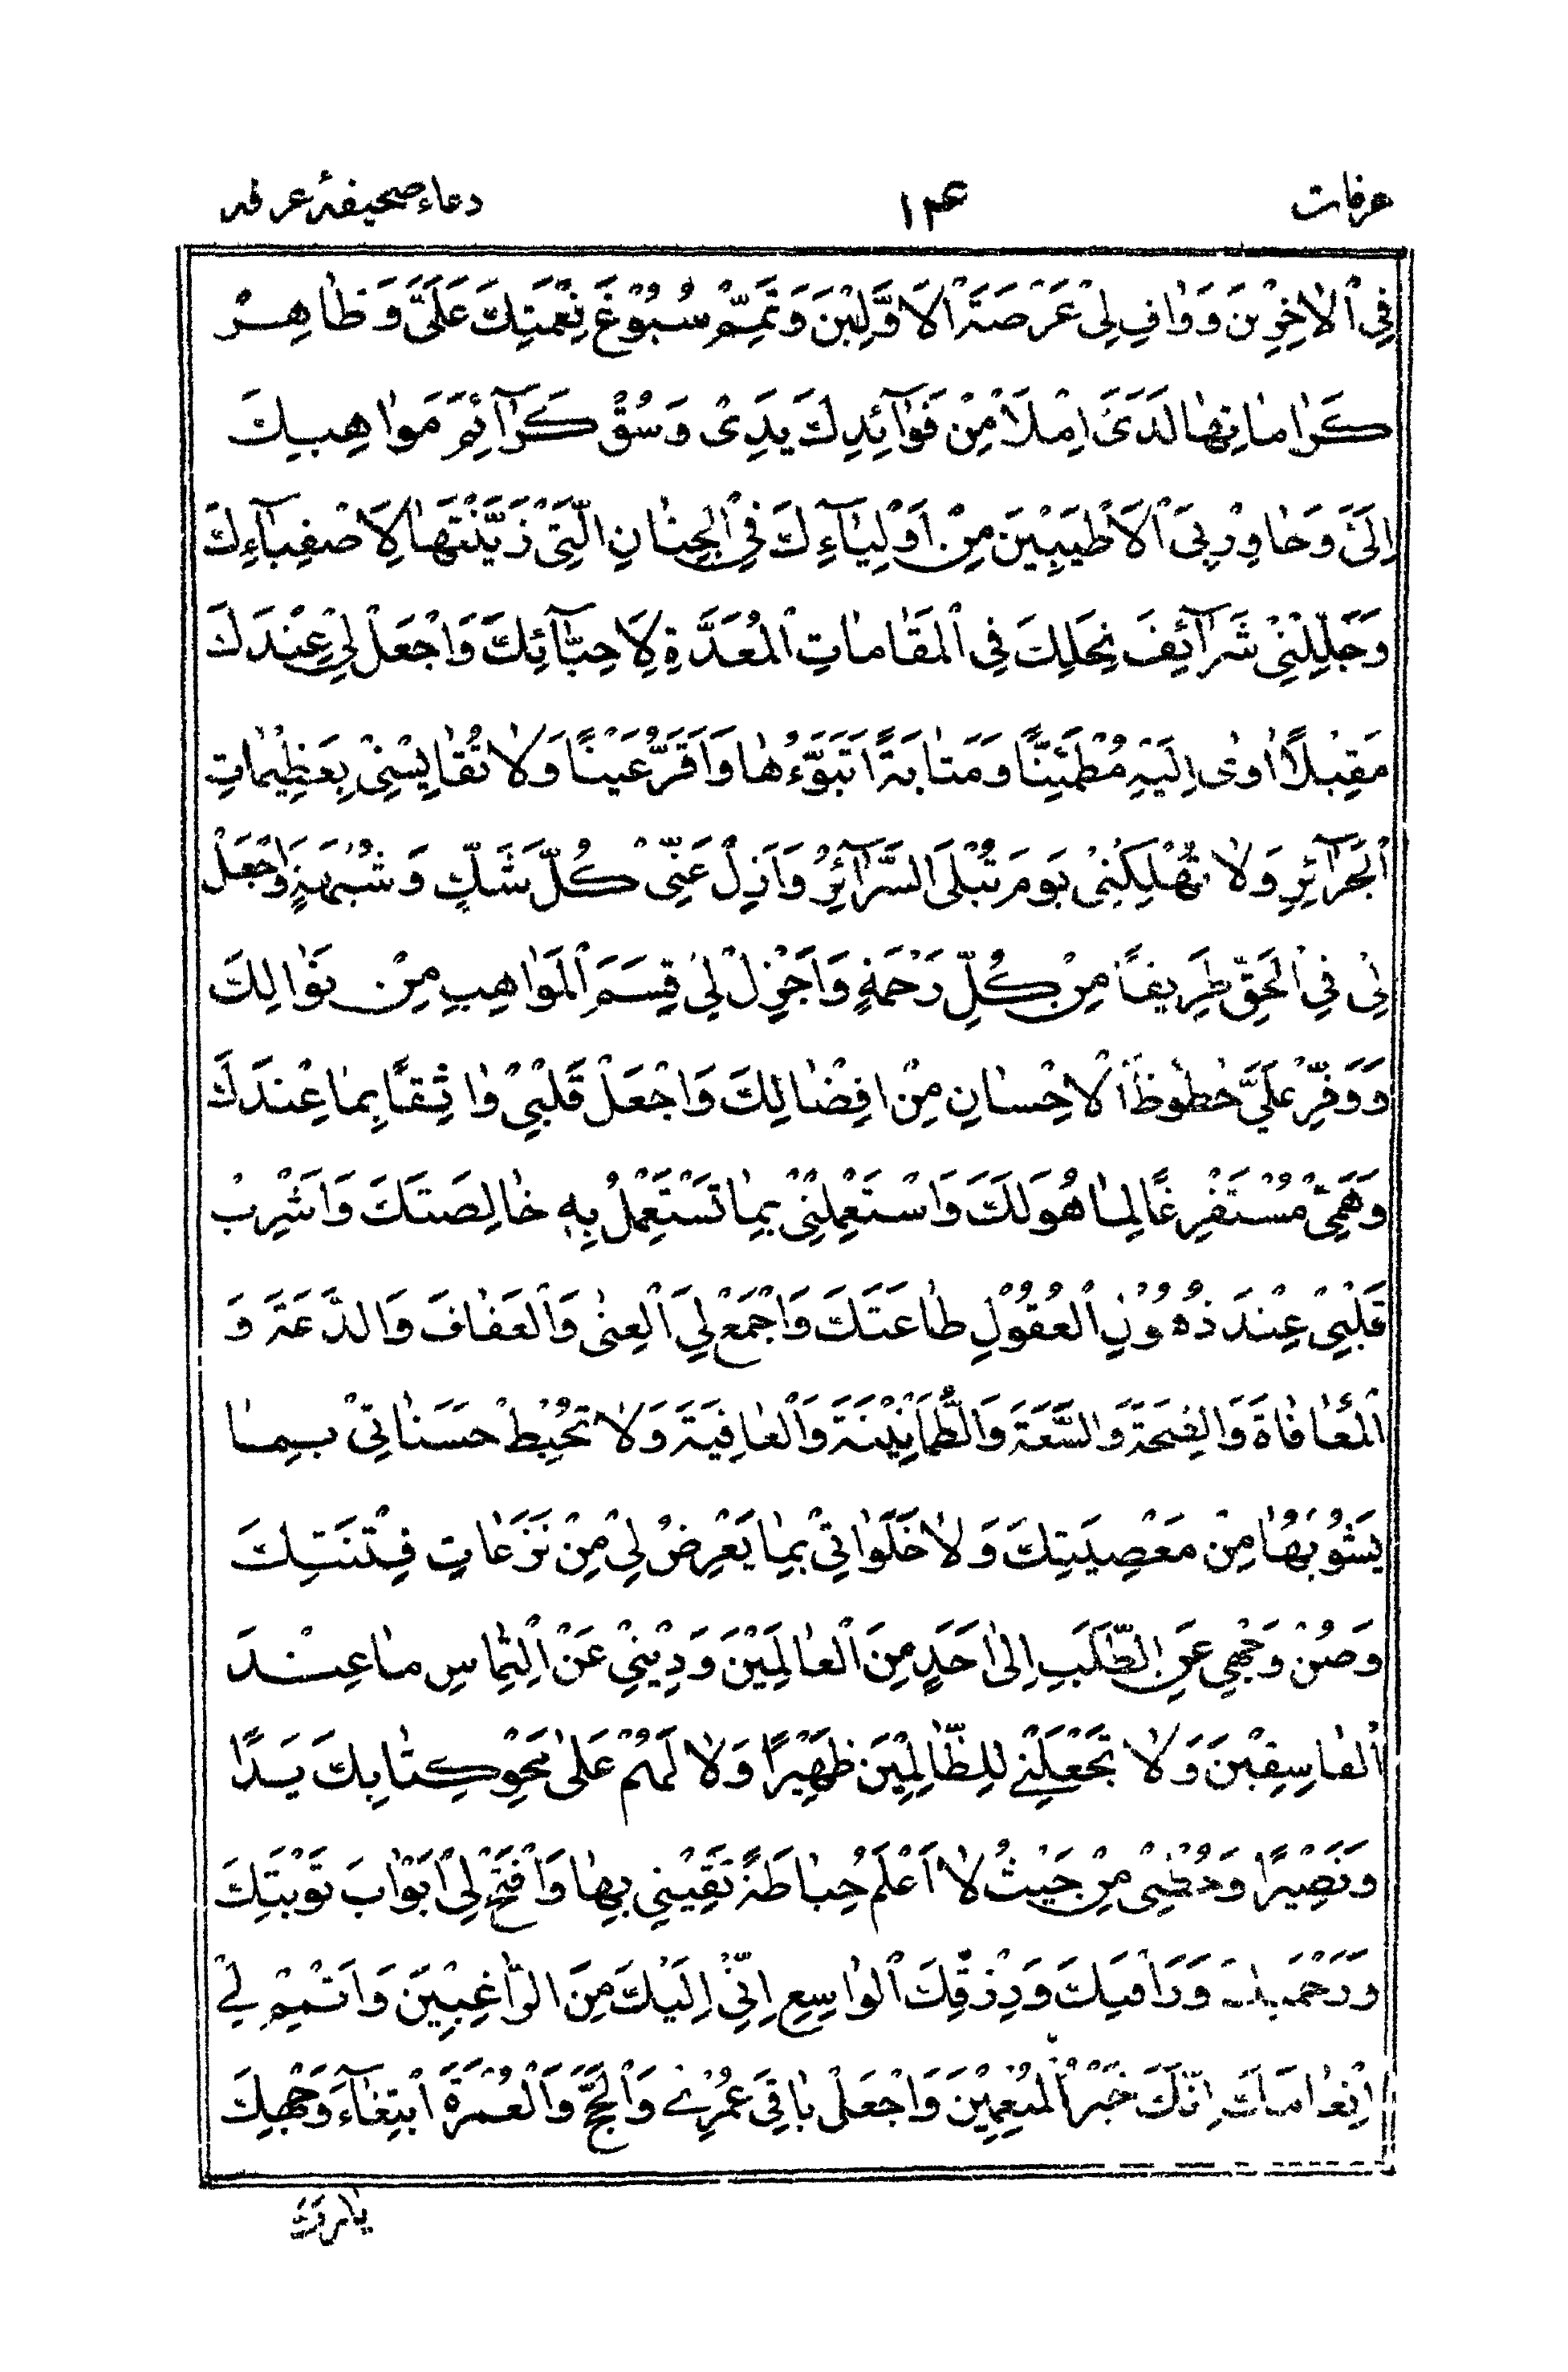 عرفات ۱۳۴ دعاء صحیفهٔ عرفه
فِی الْاٰخِرِیْنَ وَوَافِ لِیْ عَرْصَةَ الْاَوَّلِیْنَ وَتَمِّمْ سُبُوْغَ نِعْمَتِكَ عَلَیَّ وَظَاهِرْ
كَرَامَاتِهَا لَدَیَّ اِمْلَأْ مِنْ فَوَآئِدِكَ یَدِیْ وَسُقْ كَرَآئِمَ مَوَاهِبِكَ
اِلَیَّ وَجَاوِرْ بِیَ الْاَطْیَبِیْنَ مِنْ اَوْلِیَآءِكَ فِی الْجِنَانِ الَّتِیْ زَیَّنْتَهَا لِاَصْفِیَآءِكَ
وَجَلِّلْنِیْ شَرَآئِفَ نِحَلِكَ فِی الْمَقَامَاتِ الْمُعَدَّةِ لِاَحِبَّآئِكَ وَاجْعَلْ لِیْ عِنْدَكَ
مَقِیْلًا اٰوِیْ اِلَیْهِ مُطْمَئِنًّا وَمَثَابَةً اَتَبَوَّءُهَا وَاَقَرُّ عَیْنًا وَلَا تُقَایِسْنِیْ بِعَظِیْمَاتِ
الْجَرَآئِرِ وَلَا تُهْلِكْنِیْ یَوْمَ تُبْلَی السَّرَآئِرُ وَاَزِلْ عَنِّیْ كُلَّ شَكٍّ وَشُبْهَةٍ وَاجْعَلْ
لِیْ فِی الْحَقِّ طَرِیقًا مِنْ كُلِّ رَحْمَةٍ وَاَجْزِلْ لِیْ قِسَمَ الْمَوَاهِبِ مِنْ نَوَالِكَ
وَوَفِّرْ عَلَیَّ حُظُوْظَ الْاِحْسَانِ مِنْ اِفْضَالِكَ وَاجْعَلْ قَلْبِیْ وَاثِقًا بِمَا عِنْدَكَ
وَهَمِّیْ مُسْتَفْرِغًا لِمَا هُوَ لَكَ وَاسْتَعْمِلْنِیْ بِمَا تَسْتَعْمِلُ بِهِ خَالِصَتَكَ وَاَشْرِبْ
قَلْبِیْ عِنْدَ ذُهُوْلِ الْعُقُوْلِ طَاعَتَكَ وَاجْمَعْ لِیَ الْغِنٰی وَالْعَفَافَ وَالدَّعَةَ وَ
الْمُعَافَاةَ وَالصِّحَّةَ وَالسَّعَةَ وَالطُّمَاْنِیْنَةَ وَالْعَافِیَةَ وَلَا تُحْبِطْ حَسَنَاتِیْ بِمَا
یَشُوْبُهَا مِنْ مَعْصِیَتِكَ وَلَا خَلَوَاتِیْ بِمَا یَعْرِضُ لِیْ مِنْ نَزَغَاتِ فِتْنَتِكَ
وَصُنْ وَجْهِی عَنِ الطَّلَبِ اِلٰی اَحَدٍ مِنَ الْعَالَمِیْنَ وَدِیْنِیْ عَنْ اِلْتِمَاسِ مَا عِنْدَ
الْفَاسِقِیْنَ وَلَا تَجْعَلْنِیْ لِلظَّالِمِیْنَ ظَهِیْرًا وَلَا لَهُمْ عَلٰی مَحْوِ كِتَابِكَ یَدًا
وَنَصِیْرًا وَحُطْنِیْ مِنْ حَیْثُ لَا اَعْلَمُ حِیَاطَةً تَقِیْنِیْ بِهَا وَافْتَحْ لِیْ اَبْوَابَ تَوْبَتِكَ
وَرَحْمَتِكَ وَرَاْفَتِكَ وَرِزْقِكَ الْوَاسِعِ اِنِّیْ اِلَیْكَ مِنَ الرَّاغِبِیْنَ وَاَتْمِمْ لِیْ
اِنْعَامَكَ اِنَّكَ خَیْرُ الْمُنْعِمِیْنَ وَاجْعَلْ بَاقِیَ عُمُرِیْ وَالْحَجَّ وَالْعُمْرَةَ ابْتِغَآءَ وَجْهِكَ
یَا رَبَّ